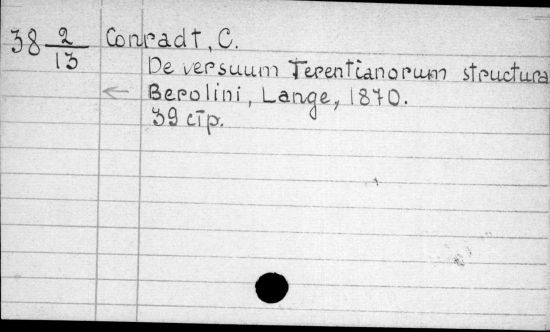 38 2/13 Conradt, C.
De versuum Terentianorum structura
Berolini, Lange, 1870.
39 стр.